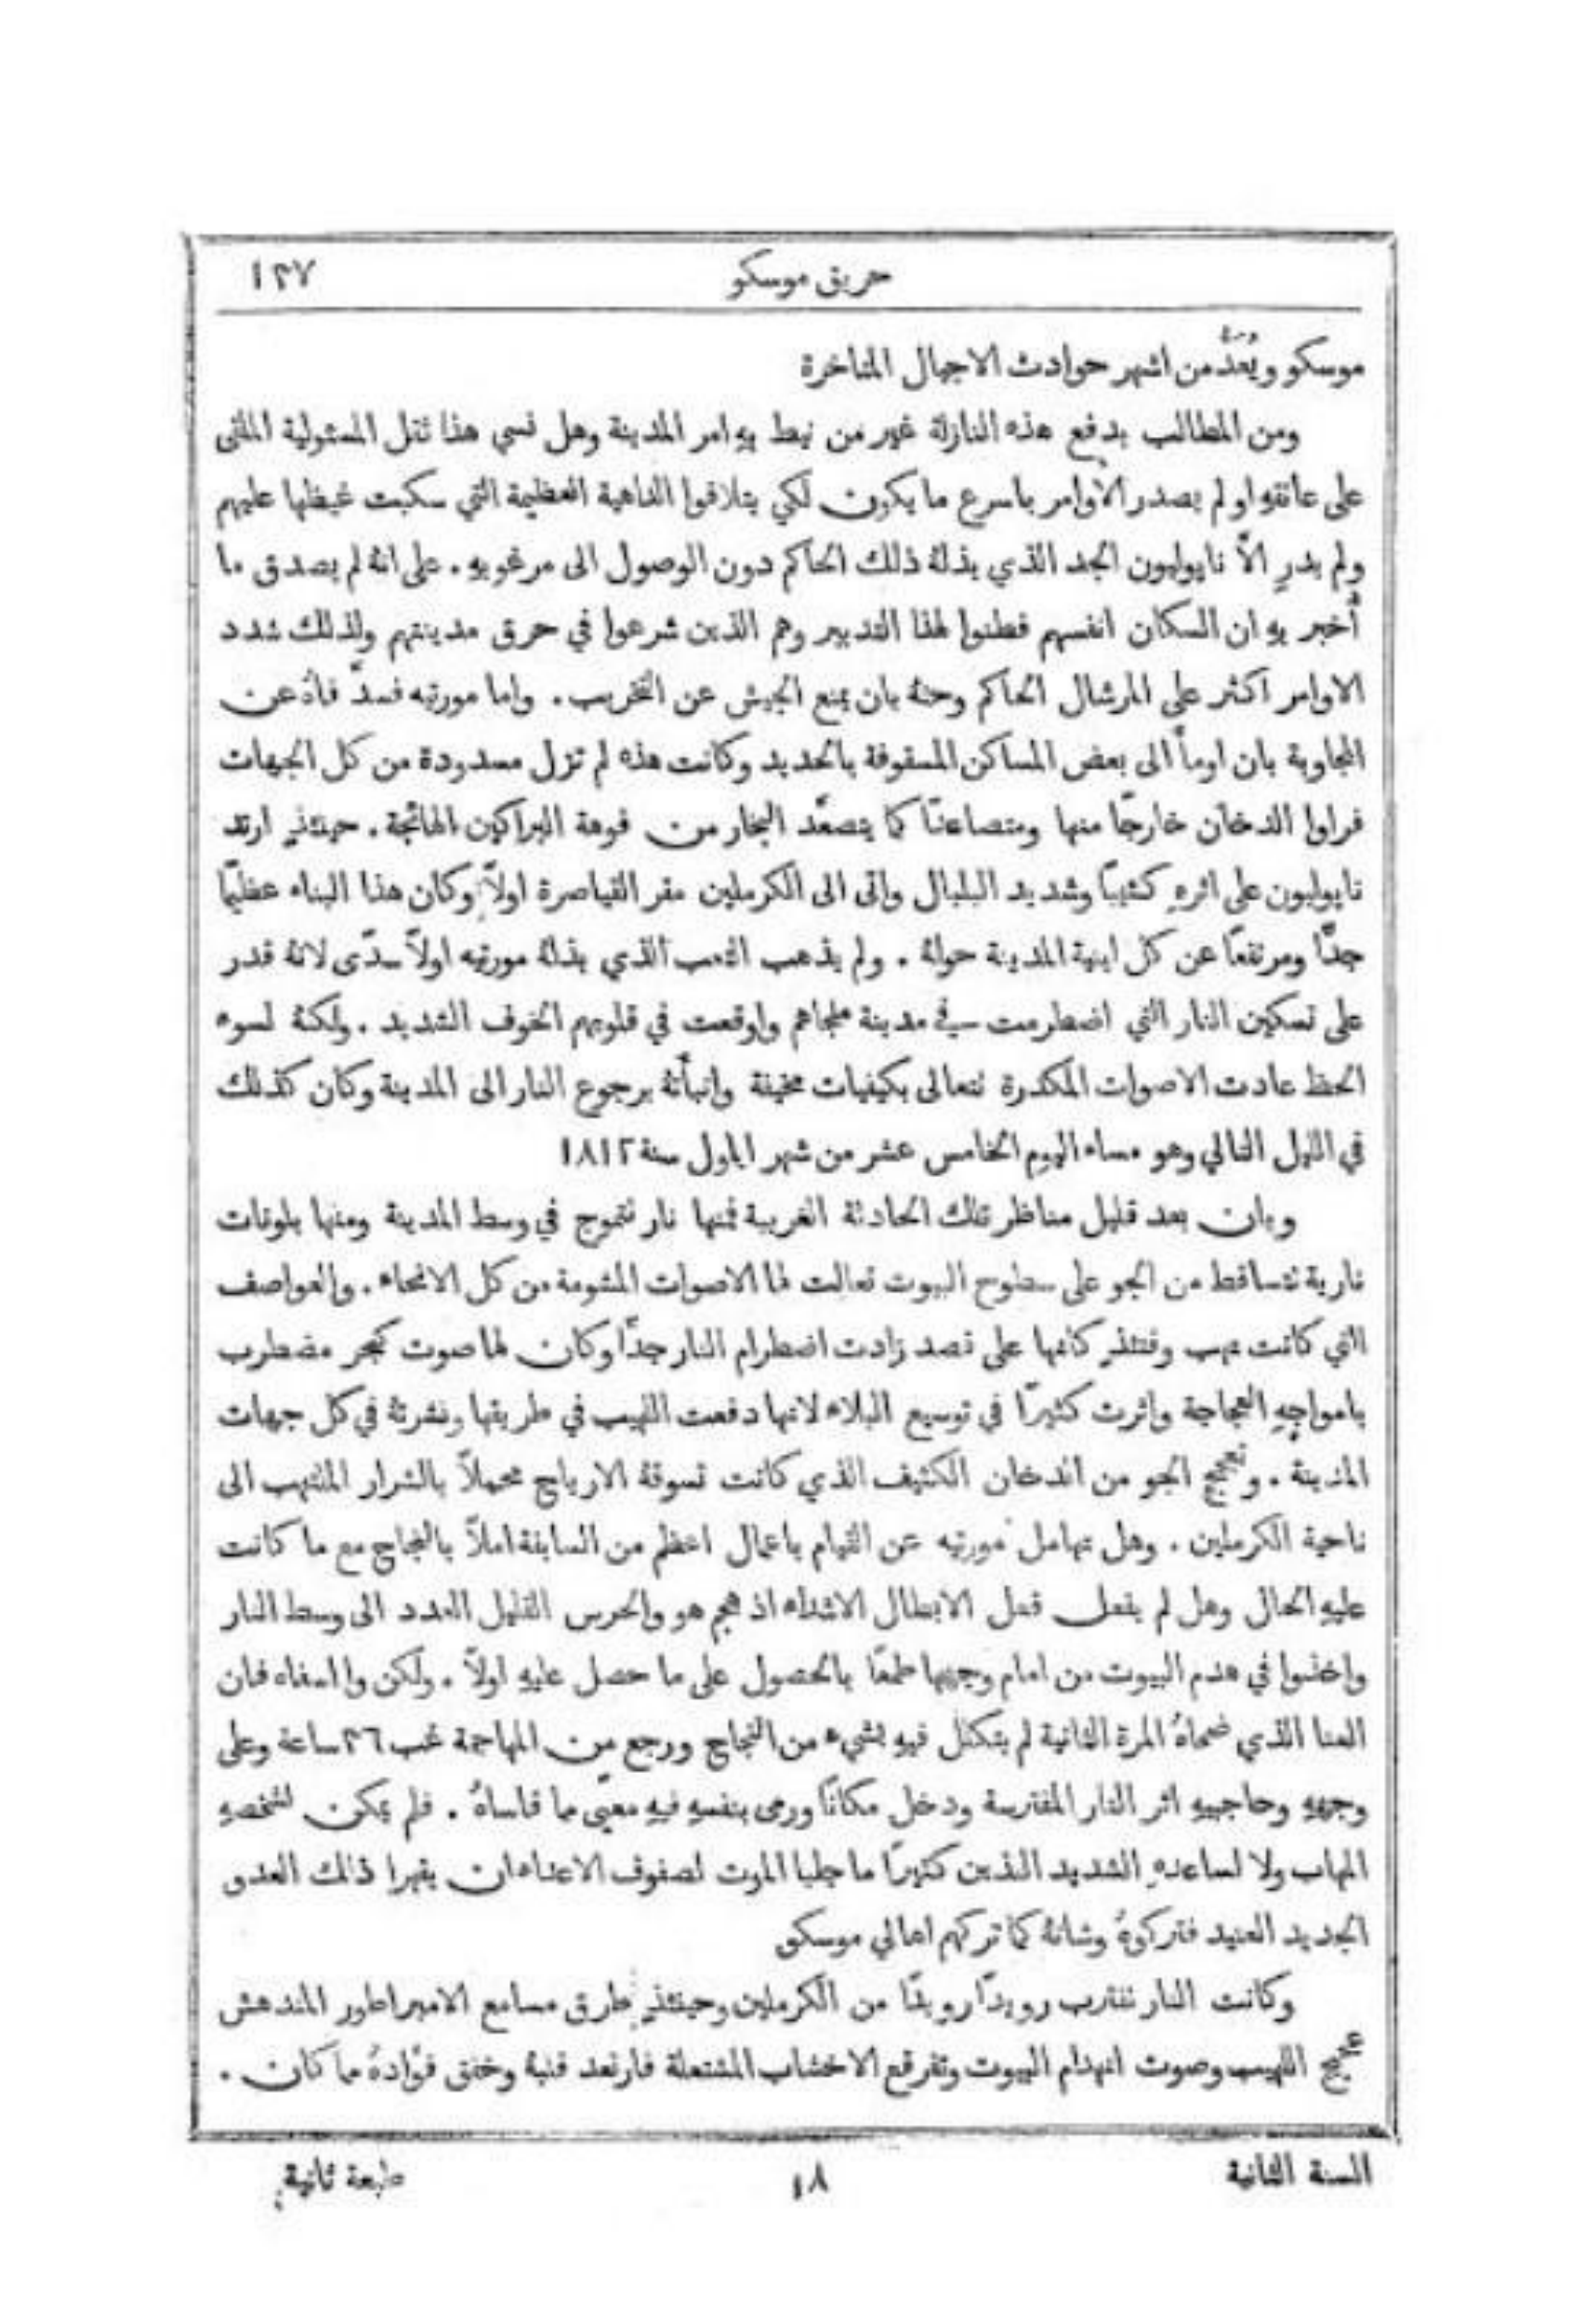 حريق موسكو ١٣٧
موسكو ويُعَدُّ من اشهر حوادث الاجيال المتاخرة
ومن المطالب بدفع هذه النازلة غير من نيط بهِ امر المدينة وهل نسي هذا ثقل المسئولية الملقى
على عاتقهِ او لم يصدر الأوامر باسرع ما يكون لكي يتلافوا الداهية العظيمة التي سكبت غيظها عليهم
ولم يدرِ الاَّ نابوليون الجد الذي بذلهُ ذلك الحاكم دون الوصول الى مرغوبهِ . على انهُ لم يصدق ما
أُخبر بهِ ان السكان انفسهم فطنوا لهذا التدبير وهم الذين شرعوا في حرق مدينتهم ولذلك شدد
الاوامر اكثر على المرشال الحاكم وحثهُ بان يمنع الجيش عن التخريب . واما مورتيه فسدَّ فاهُ عن
المجاوبة بان اومأ الى بعض المساكن المسقوفة بالحديد وكانت هذه لم تزل مسدودة من كل الجهات
فراوا الدخان خارجًا منها ومتصاعدًا كما يتصعَّد البخار من فوهة البراكين الهائجة . حينئذٍ ارتد
نابوليون على اثرهِ كئيبًا وشديد البلبال واتى الى الكرملين مقر القياصرة اولاً وكان هذا البناء عظيمًا
جدًّا ومرتفعًا عن كل ابنية المدينة حولهُ . ولم يذهب التعب الذي بذلهُ مورتيه اولاً سدًى لانهُ قدر
على تسكين النار التي اضطرمت في مدينة ملجاهم واوقعت في قلوبهم الخوف الشديد . ولكنهُ لسوء
الحظ عادت الاصوات المكدرة تتعالى بكيفيات مخيفة وانبأتهُ برجوع النار الى المدينة وكان كذلك
في الليل التالي وهو مساء اليوم الخامس عشر من شهر ايلول سنة ١٨١٢
وبان بعد قليل مناظر تلك الحادثة الغريبة فمنها نار تتموج في وسط المدينة ومنها بلونات
نارية تتساقط من الجو على سطوح البيوت تعالت لها الاصوات المشومة من كل الانحاء . والعواصف
التي كانت تهب وقتئذٍ كانها على قصد زادت اضطرام النار جدًّا وكان لها صوت كبحر مضطرب
بامواجهِ العجاجة واثرت كثيرًا في توسيع البلاء لانها دفعت اللهيب في طريقها ونشرتهُ في كل جهات
المدينة . وتعجج الجو من الدخان الكثيف الذي كانت تسوقهُ الارياح محملاً بالشرار الملتهب الى
ناحية الكرملين . وهل تهامل مورتيه عن القيام باعمال اعظم من السابقة املاً بالنجاح مع ما كانت
عليهِ الحال وهل لم يفعل فعل الابطال الاشداء اذ هجم هو والحرس القليل العدد الى وسط النار
واخذوا في هدم البيوت من امام وجهها طمعًا بالحصول على ما حصل عليهِ اولاً . ولكن وا اسفاه فان
العنا الذي ضحاهُ المرة الثانية لم يتكلل فيهِ بشيء من النجاح ورجع من المهاجمة غب ٣٦ ساعة وعلى
وجههِ وحاجبيهِ اثر النار المفترسة ودخل مكانًا ورمى بنفسهِ فيهِ معيًى مما قاساهُ . فلم يمكن لشخصهِ
المهاب ولا لساعدهِ الشديد اللذين كثيرًا ما جلبا الموت لصفوف الاعداء ان يقهرا ذلك العدو
الجديد العنيد فتركوهُ وشانهُ كما تركهم اهالي موسكو
وكانت النار تقترب رويدًا رويدًا من الكرملين وحينئذٍ طرق مسامع الامبراطور المندهش
عجيج اللهيب وصوت انهدام البيوت وتفرقع الاخشاب المشتعلة فارتعد قلبهُ وخفق فؤادهُ مما كان .
السنة الثانية ١٨ طبعة ثانية